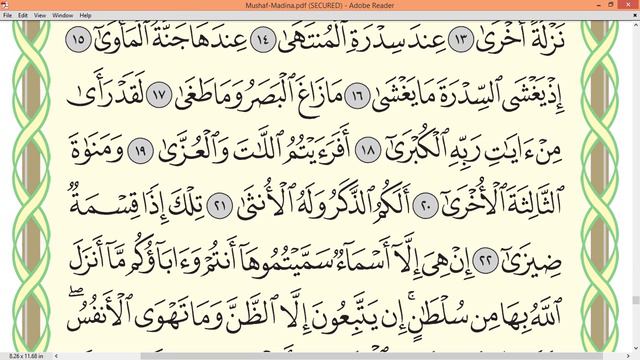 Mushaf-Madina.pdf (SECURED) - Adobe Reader
File Edit View Window Help
نَزْلَةً أُخْرَىٰ ١٣ عِندَ سِدْرَةِ ٱلْمُنتَهَىٰ ١٤ عِندَهَا جَنَّةُ ٱلْمَأْوَىٰٓ ١٥
إِذْ يَغْشَى ٱلسِّدْرَةَ مَا يَغْشَىٰ ١٦ مَا زَاغَ ٱلْبَصَرُ وَمَا طَغَىٰ ١٧ لَقَدْ رَأَىٰ
مِنْ ءَايَٰتِ رَبِّهِ ٱلْكُبْرَىٰٓ ١٨ أَفَرَءَيْتُمُ ٱللَّٰتَ وَٱلْعُزَّىٰ ١٩ وَمَنَوٰةَ
ٱلثَّالِثَةَ ٱلْأُخْرَىٰٓ ٢٠ أَلَكُمُ ٱلذَّكَرُ وَلَهُ ٱلْأُنثَىٰ ٢١ تِلْكَ إِذًا قِسْمَةٌ
ضِيزَىٰٓ ٢٢ إِنْ هِىَ إِلَّآ أَسْمَآءٌ سَمَّيْتُمُوهَآ أَنتُمْ وَءَابَآؤُكُم مَّآ أَنزَلَ
ٱللَّهُ بِهَا مِن سُلْطَٰنٍ ۚ إِن يَتَّبِعُونَ إِلَّا ٱلظَّنَّ وَمَا تَهْوَى ٱلْأَنفُسُ ۖ
8.26 x 11.68 in